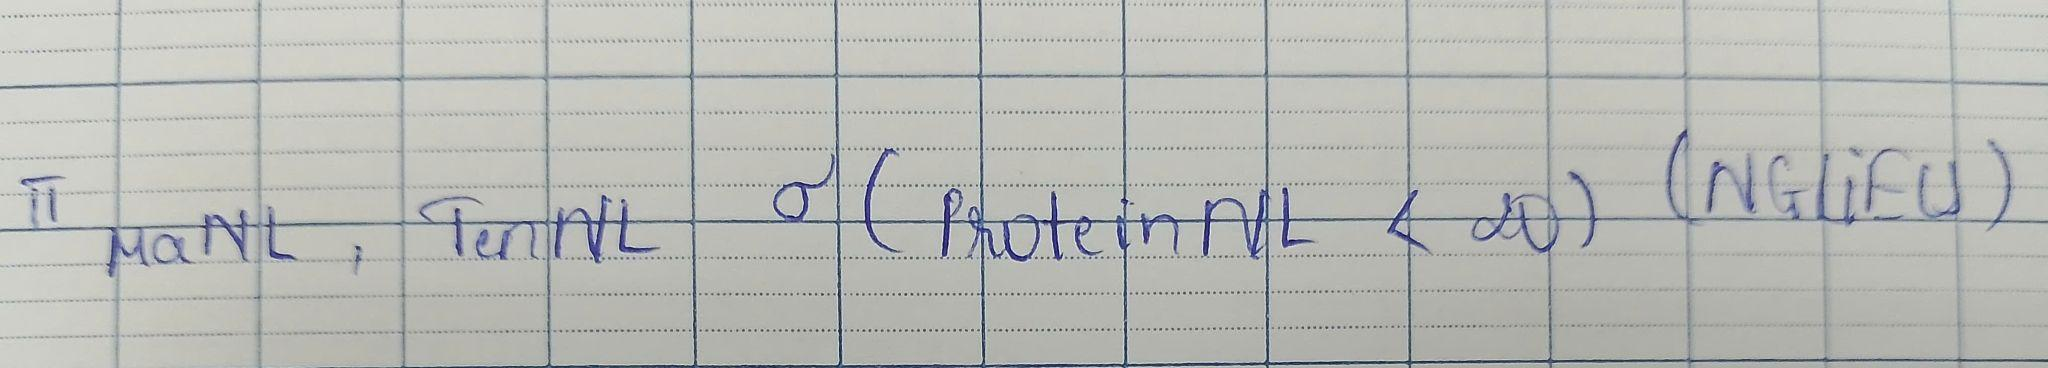 π MaNL, TenNL σ (ProteinNL < 20) (NGLiEU)